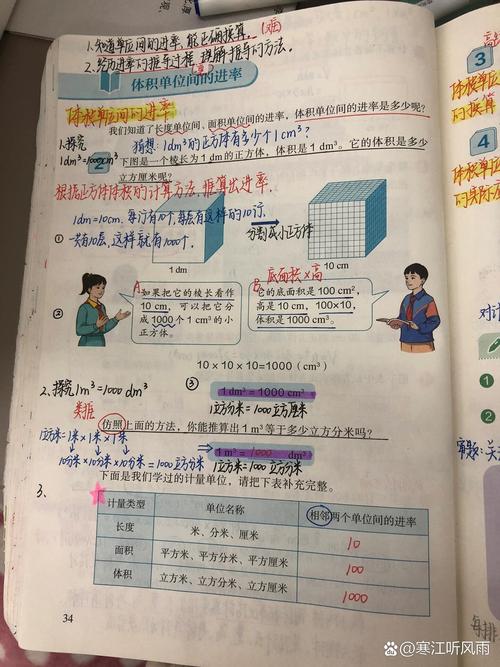 1.知道单位间的进率,能正确换算。
2.经历进率的推导过程,理解推导的方法。
体积单位间的进率
体积单位间的进率
我们知道了长度单位间、面积单位间的进率,体积单位间的进率是多少呢?
1.探究
猜想:1dm³的正方体有多少个1cm³?
1dm³=1000cm³
2 下图是一个棱长为 1 dm 的正方体,体积是 1 dm³。它的体积是多少
立方厘米呢?
根据正方体体积的计算方法,推算出进率.
1dm=10cm.每行有10个,每层有这样的10行.
① 一共有10层,这样就有1000个.
分割成小正方体
1 dm
10 cm
底面积×高
A:如果把它的棱长看作
10 cm,可以把它分
成 1000 个 1 cm³ 的小
正方体。
B:它的底面积是 100 cm²,
高是 10 cm,100×10,
体积是 1000 cm³。
②
10×10×10=1000(cm³)
2.探究1m³=1000dm³
③
1 dm³= 1000 cm³
1立方分米=1000立方厘米
类推
仿照上面的方法,你能推算出 1 m³ 等于多少立方分米吗?
1立方米=1米×1米×1米
10分米×10分米×10分米=1000立方分米
1 m³= 1000 dm³
1立方米=1000立方分米
3.
下面是我们学过的计量单位,请把下表补充完整。
计量类型 单位名称 相邻两个单位间的进率
长度 米、分米、厘米 10
面积 平方米、平方分米、平方厘米 100
体积 立方米、立方分米、立方厘米 1000
34
3
体积单位
的换算
4
体积单位
的实际应
对计
1
2
审题:关
每排
百家号/寒江听风雨